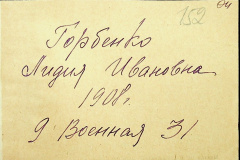 152
04
Горбенко
Лидия Ивановна
1908г.
9 Военная 31